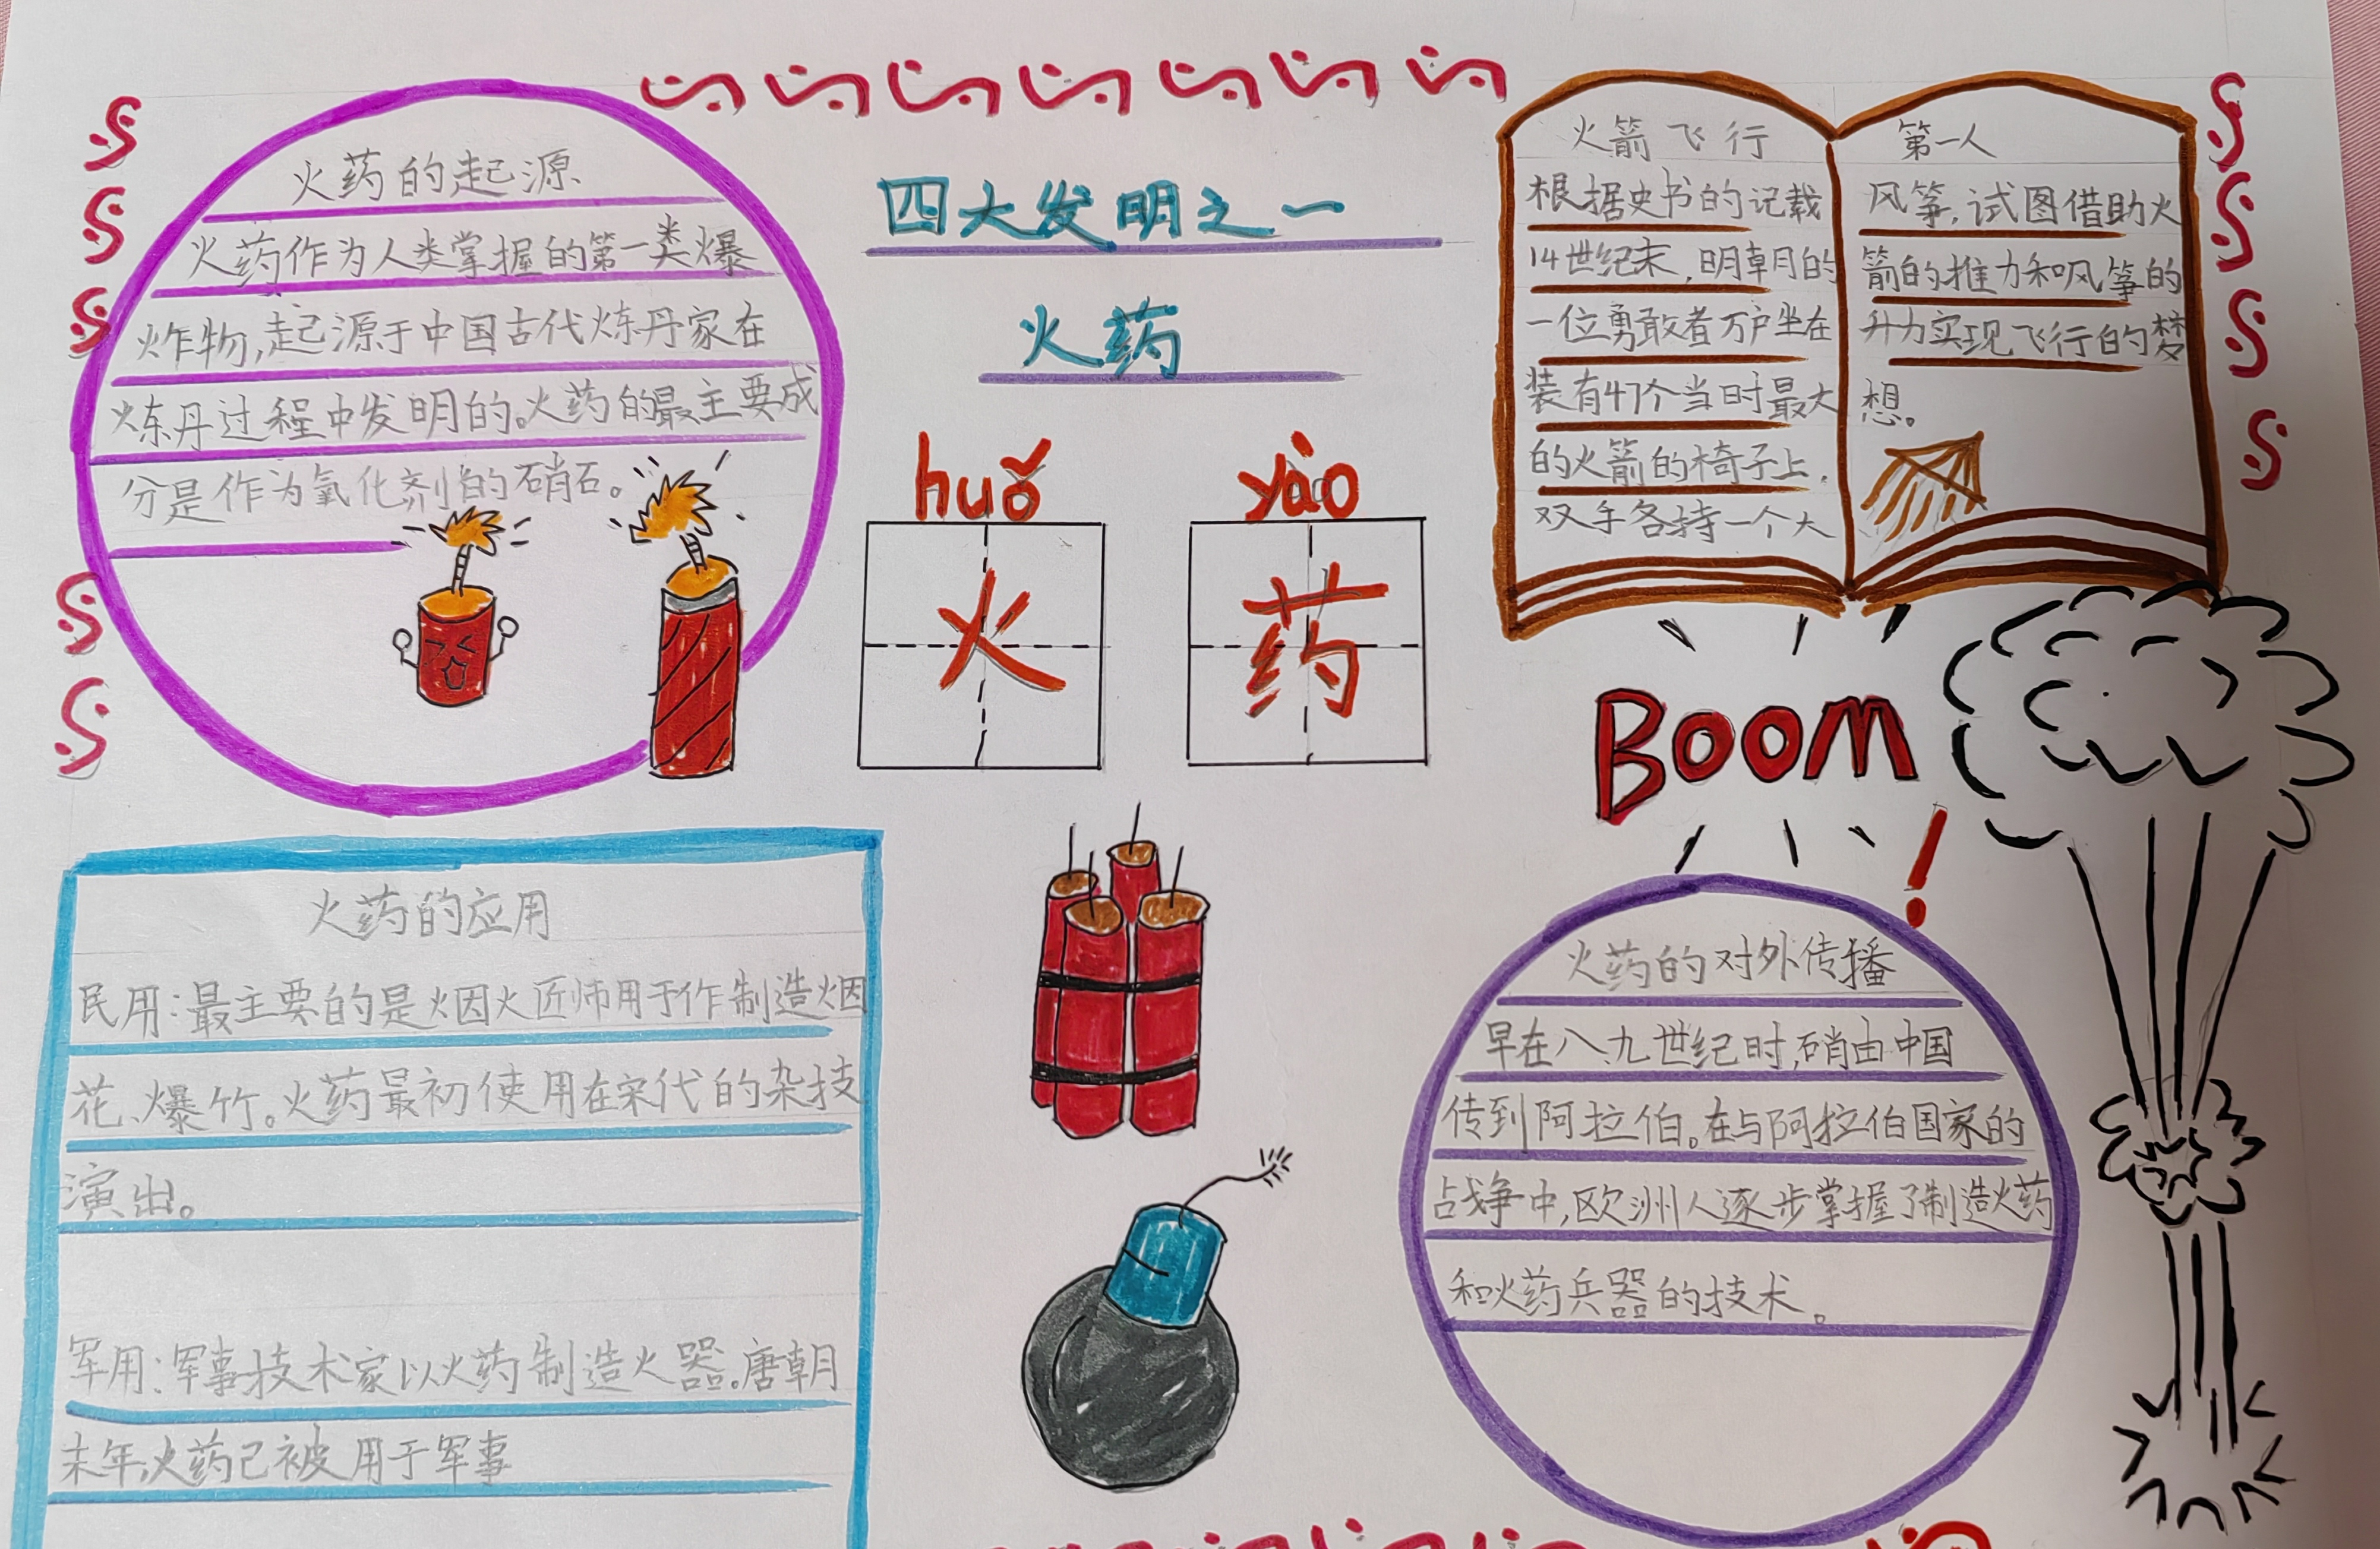 四大发明之一
火药
huǒ yào
火 药
火药的起源
火药作为人类掌握的第一类爆
炸物,起源于中国古代炼丹家在
炼丹过程中发明的。火药的最主要成
分是作为氧化剂的硝石。
火箭飞行
根据史书的记载
14世纪末,明朝的
一位勇敢者万户坐在
装有47个当时最大
的火箭的椅子上,
双手各持一个大
第一人
风筝,试图借助火
箭的推力和风筝的
升力实现飞行的梦
想。
BOOM!
火药的应用
民用:最主要的是烟火匠师用于作制造烟
花、爆竹。火药最初使用在宋代的杂技
演出。
军用:军事技术家以火药制造火器。唐朝
末年,火药已被用于军事
火药的对外传播
早在八、九世纪时,硝由中国
传到阿拉伯。在与阿拉伯国家的
战争中,欧洲人逐步掌握了制造火药
和火药兵器的技术。